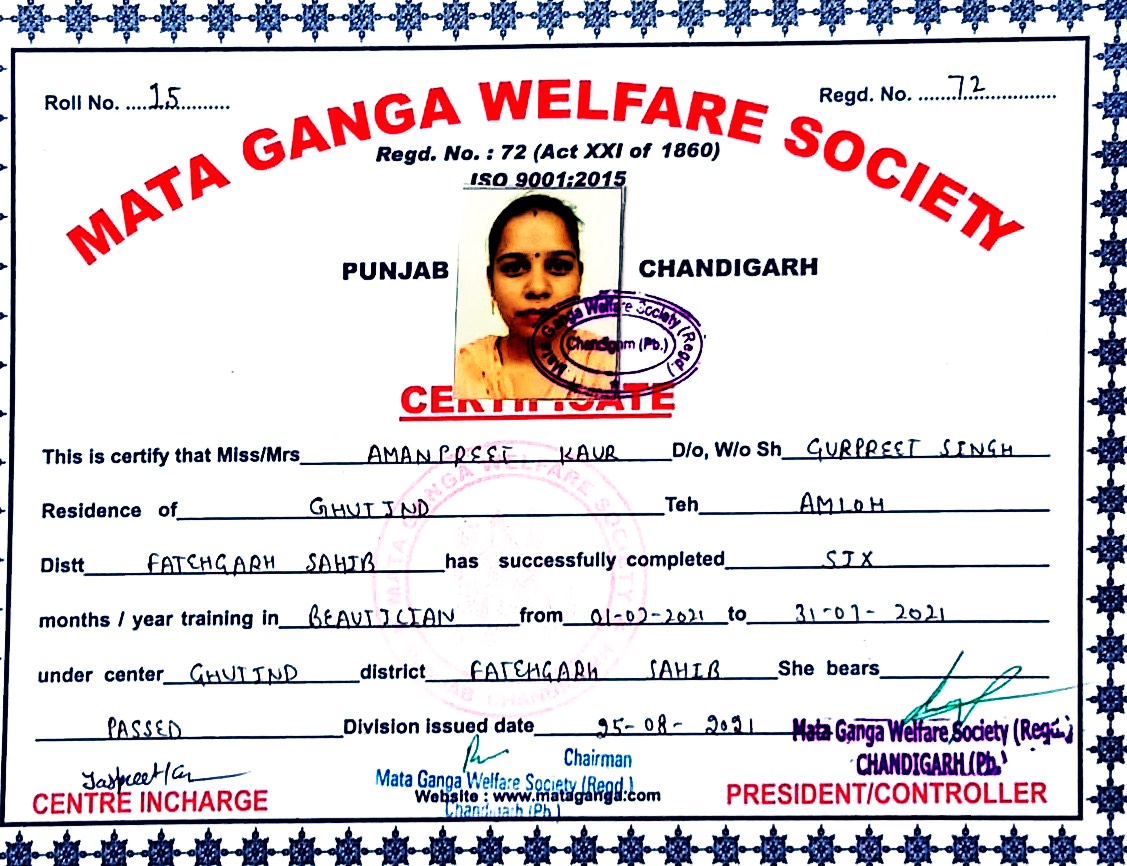 Roll No. ....15..........
Regd. No. ........72................
MATA GANGA WELFARE SOCIETY
Regd. No. : 72 (Act XXI of 1860)
ISO 9001:2015
PUNJAB CHANDIGARH
Mata Ganga Welfare Society (Regd.)
Chandigarh (Pb.)
CERTIFICATE
This is certify that Miss/Mrs AMANPREET KAUR D/o, W/o Sh GURPREET SINGH
Residence of GHUTIND Teh AMLOH
Distt FATEHGARH SAHIB has successfully completed SIX
months / year training in BEAUTICIAN from 01-02-2021 to 31-07-2021
under center GHUTIND district FATEHGARH SAHIB She bears
PASSED Division issued date 25-08-2021
MATA GANGA WELFARE SOCIETY
PUNJAB CHANDIGARH
Mata Ganga Welfare Society (Regd.)
CHANDIGARH (Pb.)
Chairman
Mata Ganga Welfare Society (Regd.)
Website : www.mataganga.com
Chandigarh (Pb.)
CENTRE INCHARGE
PRESIDENT/CONTROLLER